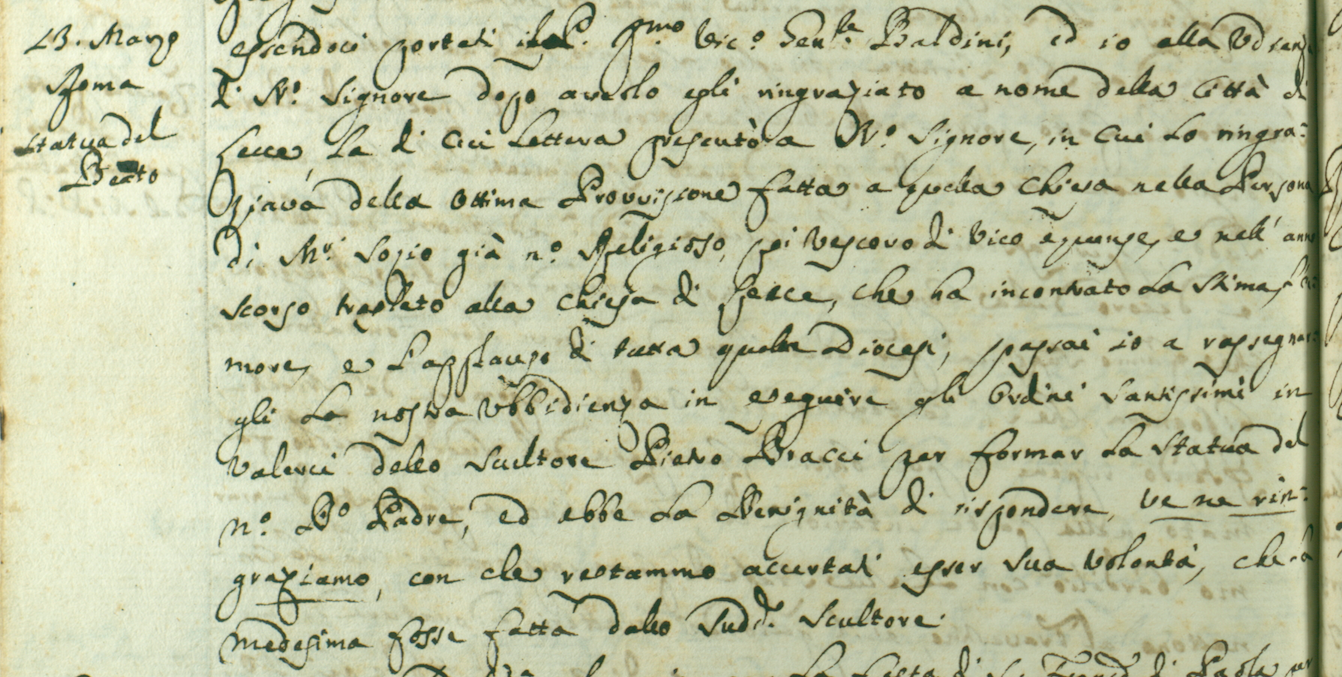 23. Marzo
Roma
Statua del
Beato
essendoci portati il P. Pmo Vico Genle Baldini, ed io alla Udienza
di No. Signore dopo averlo egli ringraziato a nome della Città di
Lecce, la di cui lettera presentò a No. Signore, in cui lo ringra:
ziava della ottima Provvisione fatta a quella Chiesa nella Persona
di Mr. Sozio già no. Religioso, poi Vescovo di Vico equense, e nell' anno
scorso traslato alla Chiesa di Lecce, che ha incontrato la stima, l'a
more, e l'applauso di tutta quella Diocesi, passai io a rassegnar
gli la nostra Ubbidienza in eseguire gli Ordini Santissimi in
valerci dello Scultore Pietro Bracci per formar la Statua del
no. Bo. Padre, ed ebbe la Benignità di rispondere, ve ne rin:
graziamo, con che restammo accertati esser sua volontà, che la
medesima fosse fatta dallo sudd. Scultore.
La Festa di S. Franco di Paola